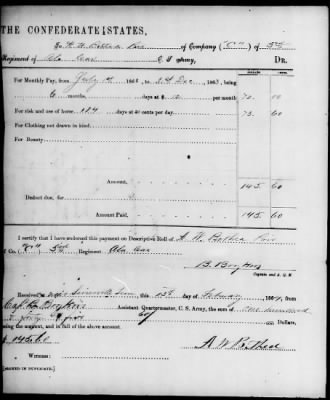 THE CONFEDERATE STATES,
To A. W. Bethea Priv of Company ("C") of 3rd
Regiment of Ala Cav C. S. Army, DR.
For Monthly Pay, from July 1st 1863, to 31 Dec, 1863, being
6 months, days at $ 12 per month 72 00
For risk and use of horse, 184 days at 40 cents per day 73 60
For Clothing not drawn in kind
For Bounty
Amount, 145 60
Deduct due for
Amount Paid, 145 60
I certify that I have endorsed this payment on Descriptive Roll of A. W. Bethea Priv
of Co. ("C") 3rd Regiment Ala Cav
B. Boykin
Captain and A. Q. M.
Received this day of February 1864, of
Capt B. Boykin Assistant Quartermaster, C. S. Army, the sum of One hundred
& forty 60 Dollars,
being the amount, and in full of the above account.
$ 145.60 A W Bethea
Witness:
[SIGNED IN DUPLICATE.]